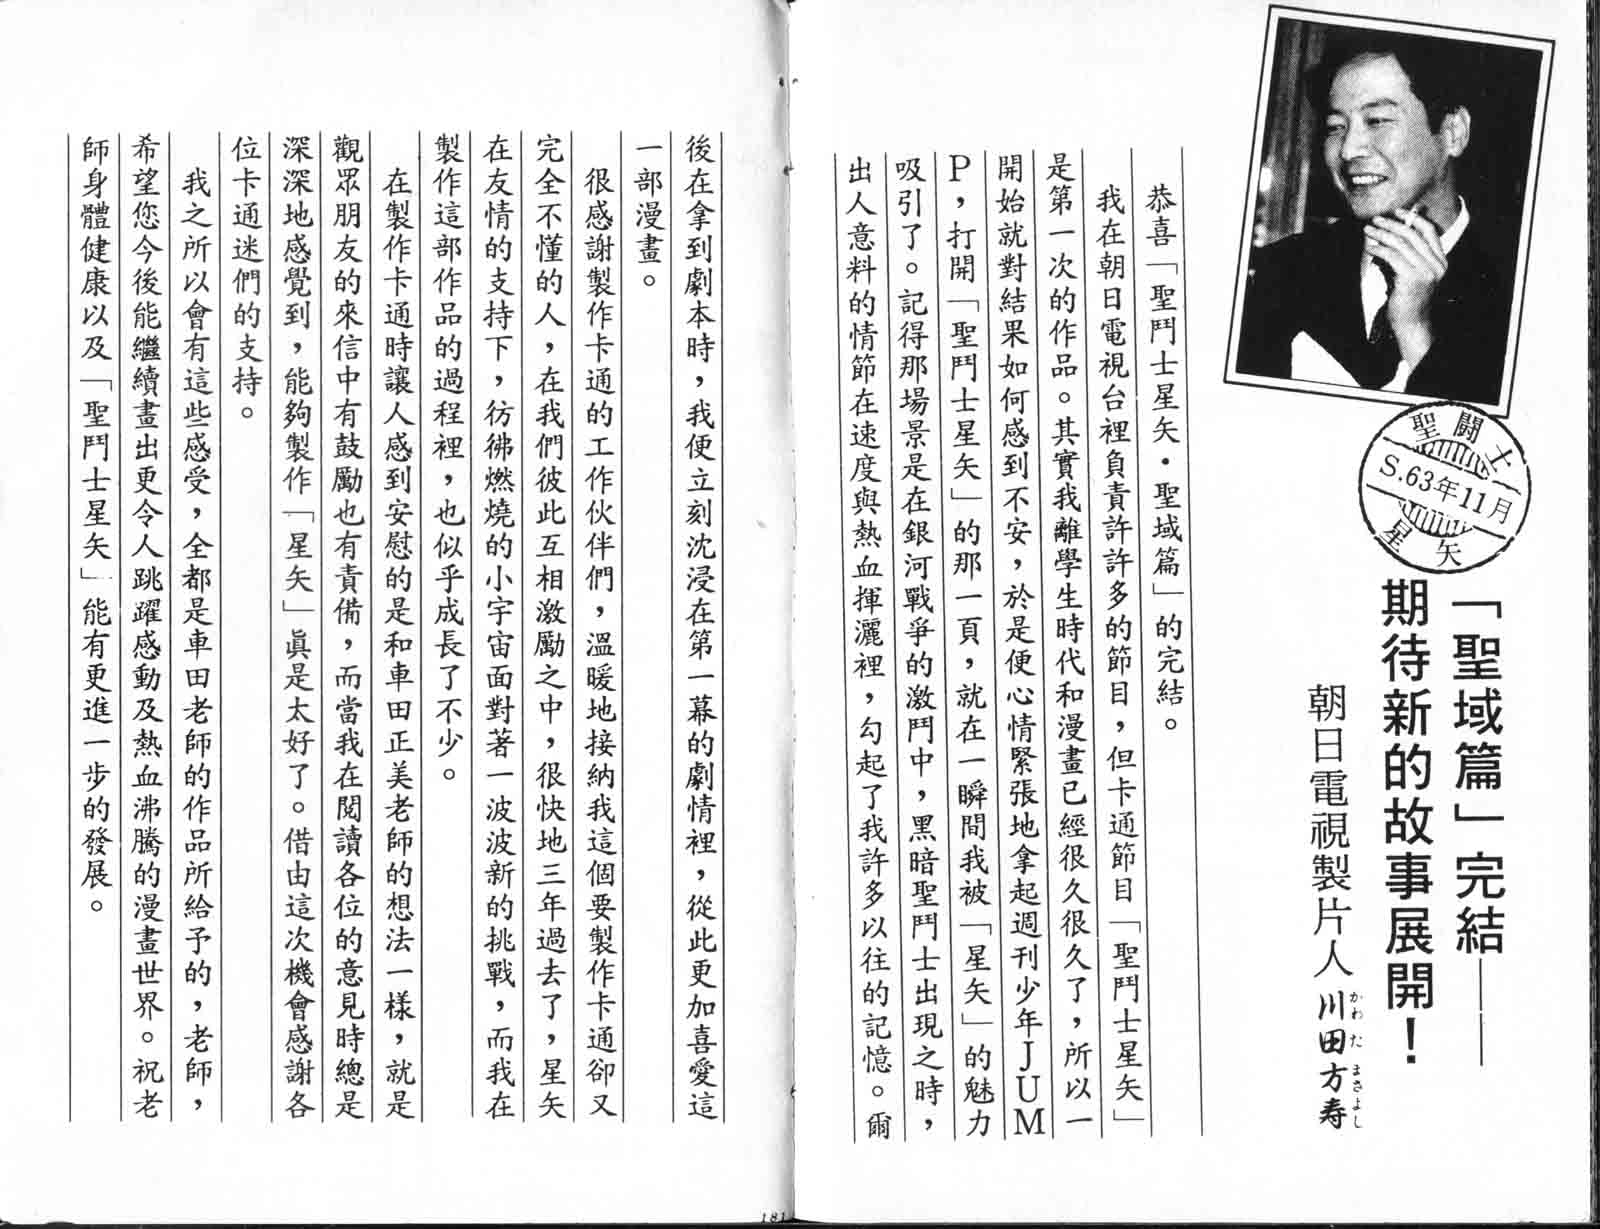 聖闘士
S.63年11月
星矢
「聖域篇」完結——
期待新的故事展開！
朝日電視製片人 川田方寿
かわた まさよし
恭喜「聖鬥士星矢・聖域篇」的完結。
我在朝日電視台裡負責許許多多的節目，但卡通節目「聖鬥士星矢」
是第一次的作品。其實我離學生時代和漫畫已經很久很久了，所以一
開始就對結果如何感到不安，於是便心情緊張地拿起週刊少年JUM
P，打開「聖鬥士星矢」的那一頁，就在一瞬間我被「星矢」的魅力
吸引了。記得那場景是在銀河戰爭的激鬥中，黑暗聖鬥士出現之時，
出人意料的情節在速度與熱血揮灑裡，勾起了我許多以往的記憶。爾
後在拿到劇本時，我便立刻沈浸在第一幕的劇情裡，從此更加喜愛這
一部漫畫。
很感謝製作卡通的工作伙伴們，溫暖地接納我這個要製作卡通卻又
完全不懂的人，在我們彼此互相激勵之中，很快地三年過去了，星矢
在友情的支持下，彷彿燃燒的小宇宙面對著一波波新的挑戰，而我在
製作這部作品的過程裡，也似乎成長了不少。
在製作卡通時讓人感到安慰的是和車田正美老師的想法一樣，就是
觀眾朋友的來信中有鼓勵也有責備，而當我在閱讀各位的意見時總是
深深地感覺到，能夠製作「星矢」真是太好了。借由這次機會感謝各
位卡通迷們的支持。
我之所以會有這些感受，全都是車田老師的作品所給予的，老師，
希望您今後能繼續畫出更令人跳躍感動及熱血沸騰的漫畫世界。祝老
師身體健康以及「聖鬥士星矢」能有更進一步的發展。
181